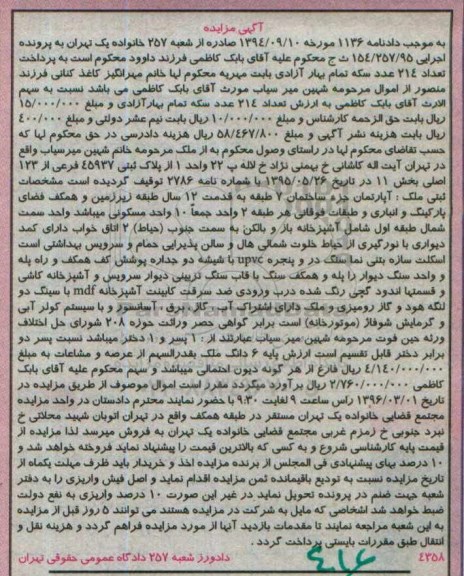 آگهی مزایده
به موجب دادنامه ۱۱۳۶ مورخه ۱۳۹۴/۰۹/۱۰ صادره از شعبه ۲۵۷ خانواده یک تهران به پرونده
اجرایی ۱۵۴/۲۵۷/۹۵ ث ج محکوم علیه آقای بابک کاظمی فرزند داوود محکوم است به پرداخت
تعداد ۲۱۴ عدد سکه تمام بهار آزادی بابت مهریه محکوم لها خانم مهرانگیز کاغذ کنانی فرزند
منصور از اموال مرحومه شهین میر سیاب مورث آقای بابک کاظمی می باشد نسبت به سهم
الارث آقای بابک کاظمی به ارزش تعداد ۲۱۴ عدد سکه تمام بهارآزادی و مبلغ ۱۵/۰۰۰/۰۰۰
ریال بابت حق الزحمه کارشناس و مبلغ ۱۰/۰۰۰/۰۰۰ ریال بابت نیم عشر دولتی و مبلغ ۴۰۰/۰۰۰
ریال بابت هزینه نشر آگهی و مبلغ ۵۸/۴۶۷/۸۰۰ ریال هزینه دادرسی در حق محکوم لها که
حسب تقاضای محکوم لها در راستای وصول محکوم به از ملک مرحومه خانم شهین میرسیاب واقع
در تهران آیت اله کاشانی خ بهمنی نژاد خ لاله پ ۲۲ واحد ۱ از پلاک ثبتی ۴۵۹۳۷ فرعی از ۱۲۳
اصلی بخش ۱۱ در تاریخ ۱۳۹۵/۰۵/۲۶ با شماره نامه ۲۷۸۶ توقیف گردیده است مشخصات
ثبتی ملک : آپارتمان جزء ساختمان ۷ طبقه به قدمت ۱۲ سال طبقه زیرزمین و همکف فضای
پارکینگ و انباری و طبقات فوقانی هر طبقه ۲ واحد جمعاً ۱۰ واحد مسکونی میباشد واحد سمت
شمال طبقه اول شامل آشپزخانه باز و بالکن به سمت جنوب (حیاط) ۲ اتاق خواب دارای کمد
دیواری با نورگیری از حیاط خلوت شمالی هال و سالن پذیرایی حمام و سرویس بهداشتی است
اسکلت سازه بتنی نما سنگ در و پنجره upvc با شیشه دو جداره پوشش کف همکف و راه پله
و واحد سنگ دیوار را پله و همکف سنگ با قاب سنگ تزیینی دیوار سرویس و آشپزخانه کاشی
و قسمتها اندود گچی رنگ شده درب ورودی ضد سرقت کابینت آشپزخانه mdf با سینک دو
لنگه هود و گاز رومیزی و ملک دارای اشتراک آب ، گاز ، برق ، آسانسور و با سیستم کولر آبی
و گرمایش شوفاژ (موتورخانه) است برابر گواهی حصر وراثت حوزه ۲۰۸ شورای حل اختلاف
ورثه حین فوت مرحومه شهین میر سیاب عبارتند از : ۱ پسر و ۱ دختر میباشد نسبت پسر دو
برابر دختر قابل تقسیم است ارزش پایه ۶ دانگ ملک بقدرالسهم از عرصه و مشاعات به مبلغ
۴/۱۴۰/۰۰۰/۰۰۰ ریال فارغ از هر گونه دیون احتمالی میباشد و سهم محکوم علیه آقای بابک
کاظمی ۲/۷۶۰/۰۰۰/۰۰۰ ریال برآورد میگردد مقرر است اموال موصوف از طریق مزایده در
تاریخ ۱۳۹۶/۰۳/۰۱ راس ساعت ۹ لغایت ۹:۳۰ با حضور نماینده محترم دادستان در واحد مزایده
مجتمع قضایی خانواده یک تهران مستقر در طبقه همکف واقع در تهران اتوبان شهید محلاتی خ
نبرد جنوبی خ زمزم غربی مجتمع قضایی خانواده یک تهران به فروش میرسد لذا مزایده از
قیمت پایه کارشناسی شروع و به کسی که بالاترین قیمت را پیشنهاد نماید فروخته خواهد شد و
۱۰ درصد بهای پیشنهادی فی المجلس از برنده مزایده اخذ و خریدار باید ظرف مهلت یکماه از
تاریخ مزایده نسبت به تودیع باقیمانده ثمن مزایده اقدام نماید و اصل فیش واریزی را به دفتر
شعبه جهت ضم در پرونده تحویل نماید در غیر این صورت ۱۰ درصد واریزی به نفع دولت
ضبط خواهد شد اشخاصی که مایل به شرکت در مزایده هستند می توانند ۵ روز قبل از مزایده
به این شعبه مراجعه نمایند تا مقدمات بازدید آنها از مورد مزایده فراهم گردد و هزینه نقل و
انتقال طبق مقررات بایستی پرداخت گردد .
۴۳۵۸ دادورز شعبه ۲۵۷ دادگاه عمومی حقوقی تهران
۴۱۶